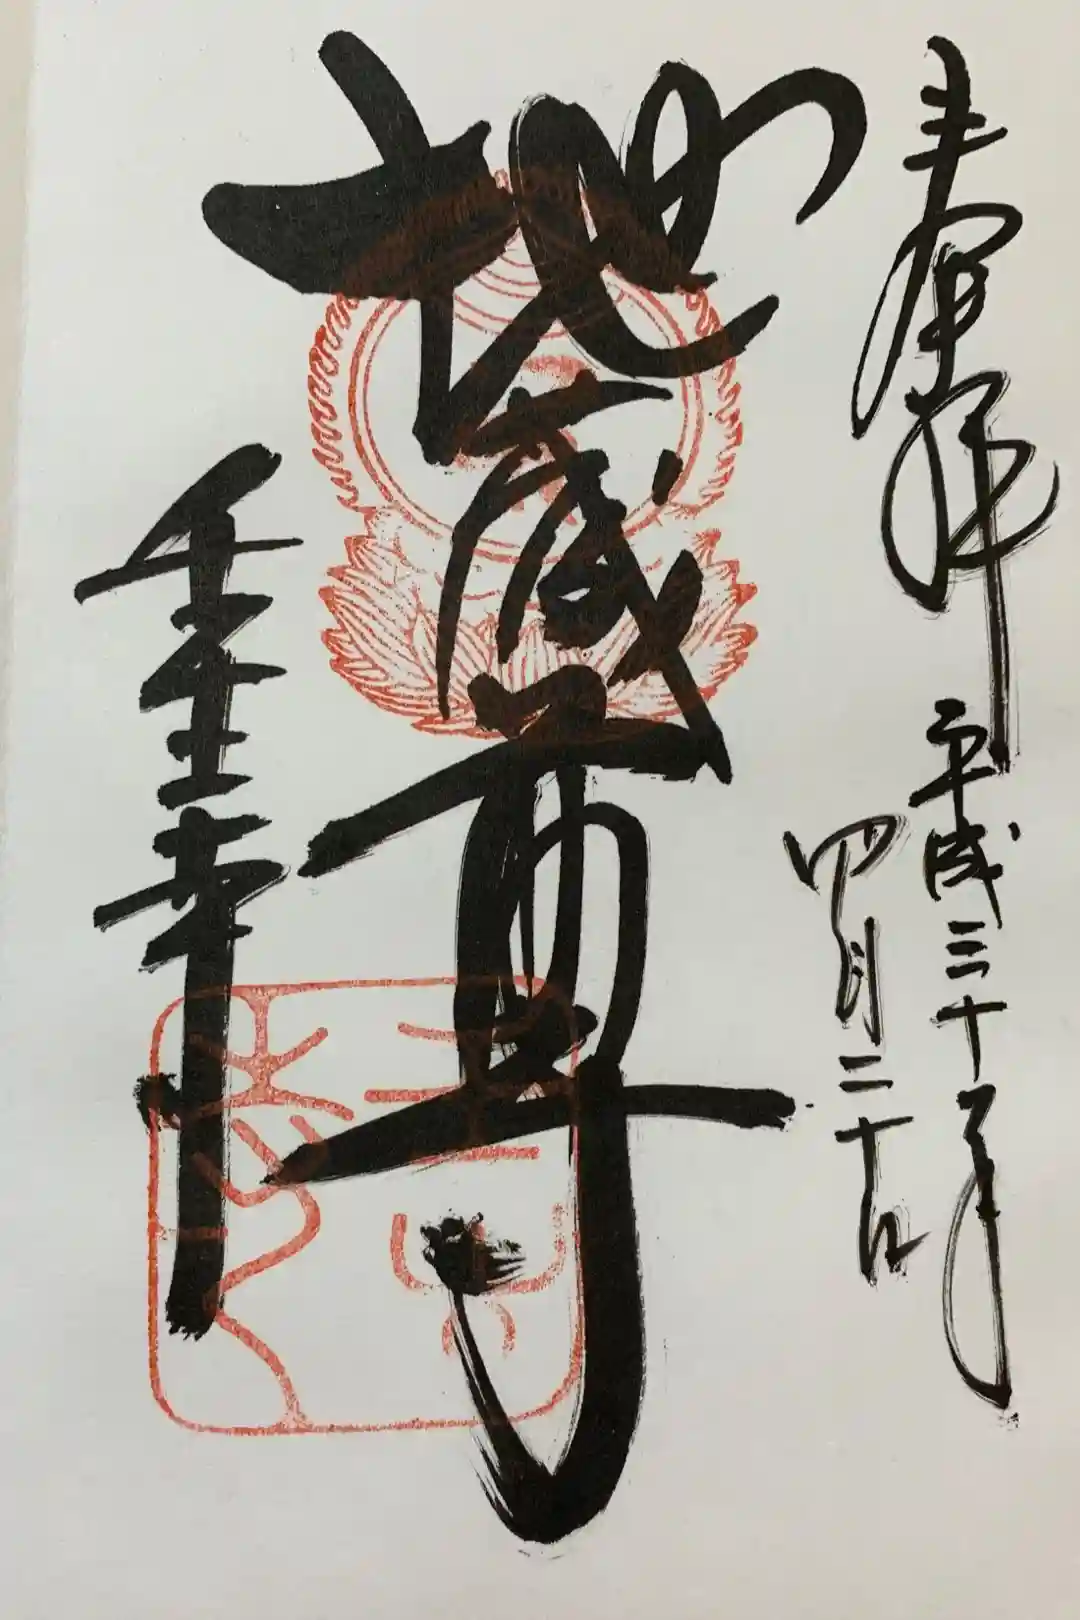 奉拝
平成三十年
四月二十日
地蔵尊
寺